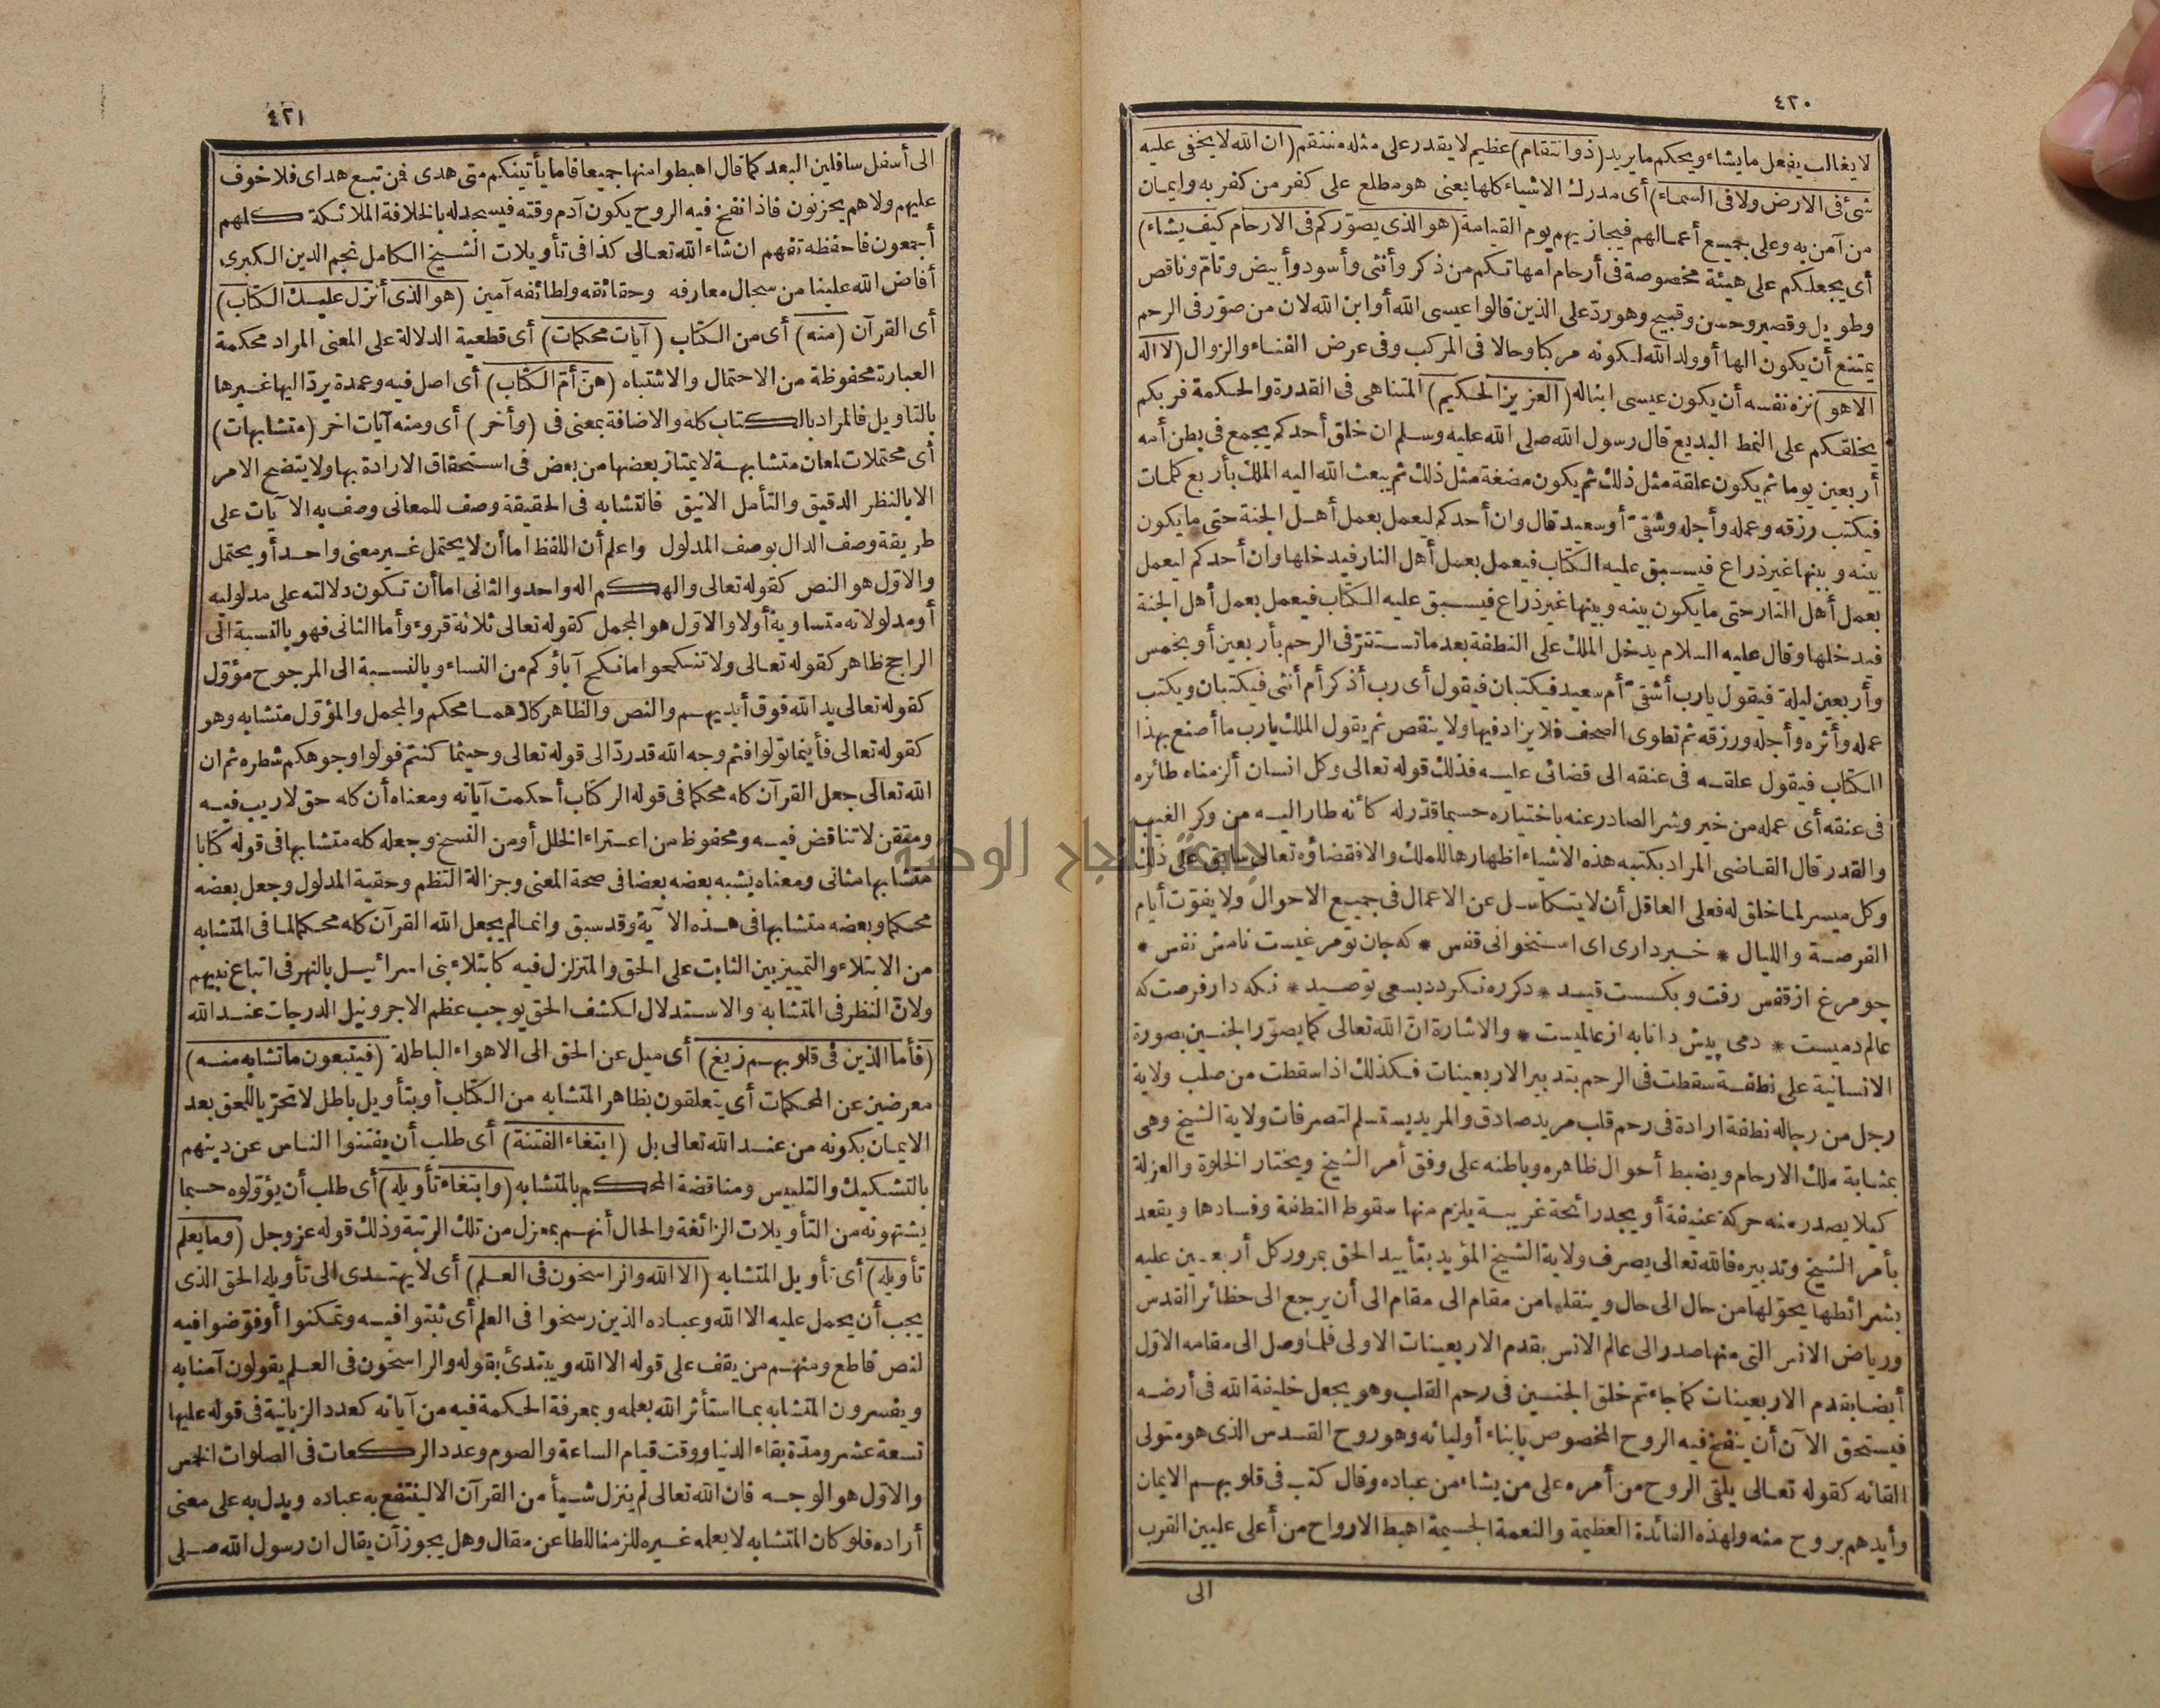 ٤٢٠
لا يغالب يفعل ما يشاء ويحكم ما يريد (ذوانتقام) عظيم لا يقدر على مثله منتقم (ان الله لا يخفى عليه
شئ فى الارض ولا فى السماء) أى مدرك الاشياء كلها يعنى هو مطلع على كفر من كفر به وايمان
من آمن به وعلى جميع أعمالهم فيجازيهم يوم القيامة (هو الذى يصوّركم فى الارحام كيف يشاء)
أى يجعلكم على هيئة مخصوصة فى أرحام امهاتكم من ذكر وأنثى وأسود وأبيض وتامّ وناقص
وطويل وقصير وحسن وقبيح وهو ردّ على الذين قالوا عيسى الله أو ابن الله لان من صوّر فى الرحم
يمتنع أن يكون الها أو ولد الله لكونه مركبا وحالا فى المركب وفى عرض الفناء والزوال (لا اله
الا هو) نزه نفسه أن يكون عيسى ابنا له (العزيز الحكيم) المتناهى فى القدرة والحكمة فربكم
يخلقكم على النمط البديع قال رسول الله صلى الله عليه وسلم ان خلق أحدكم يجمع فى بطن أمه
أربعين يوما ثم يكون علقة مثل ذلك ثم يكون مضغة مثل ذلك ثم يبعث الله اليه الملك بأربع كلمات
فيكتب رزقه وعمله وأجله وشقىّ أو سعيد قال وان أحدكم ليعمل بعمل أهل الجنة حتى ما يكون
بينه وبينها غير ذراع فيسبق عليه الكتاب فيعمل بعمل أهل النار فيدخلها وان أحدكم ليعمل
بعمل أهل النار حتى ما يكون بينه وبينها غير ذراع فيسبق عليه الكتاب فيعمل بعمل أهل الجنة
فيدخلها وقال عليه السلام يدخل الملك على النطفة بعد ما تستقرّ فى الرحم بأربعين أو بخمس
وأربعين ليلة فيقول يارب أشقىّ أم سعيد فيكتبان فيقول أى رب أذكر أم أنثى فيكتبان ويكتب
عمله وأثره وأجله ورزقه ثم تطوى الصحف فلا يزاد فيها ولا ينقص ثم يقول الملك يارب ما أصنع بهذا
الكتاب فيقول علقه فى عنقه الى قضائى عليه فذلك قوله تعالى وكل انسان ألزمناه طائره
فى عنقه أى عمله من خير وشر الصادر عنه باختياره حسبما قدّر له كأنه طار اليه من وكر الغيب
والقدر قال القاضى المراد بكتبه هذه الاشياء اظهارها للملك والا فقضاؤه تعالى سابق على ذلك
وكل ميسر لما خلق له فعلى العاقل أن لا يتكاسل عن الاعمال فى جميع الاحوال ولا يفوّت أيام
الفرصة والليال * خبر دارى اى استخوانى قفس * كه جان تو مرغيست نامش نفس *
جو مرغ از قفس رفت وبكسست قيد * دكر ره نكردد بسعى تو صيد * نكه دار فرصت كه
عالم دميست * دمى پيش دانا به از عالميست * والاشارة انّ الله تعالى كما يصوّر الجنين بصورة
الانسانية على نطفة سقطت فى الرحم بتدبير الاربعينات فكذلك اذا سقطت من صلب ولاية
رجل من رجاله نطفة ارادة فى رحم قلب مريد صادق والمريد يستسلم لتصرفات ولاية الشيخ وهى
بمثابة ملك الارحام ويضبط أحوال ظاهره وباطنه على وفق أمر الشيخ ويختار الخلوة والعزلة
كيلا يصدر منه حركة عنيفة أو يجد رائحة غريبة يلزم منها سقوط النطفة وفسادها ويقعد
بأمر الشيخ وتدبيره فالله تعالى يصرف ولاية الشيخ المؤيد بتأييد الحق بمرور كل أربعين عليه
بشرائطها يحوّلها من حال الى حال وينقلها من مقام الى مقام الى أن يرجع الى حظائر القدس
ورياض الانس التى منها صدر الى عالم الانس بقدم الاربعينات الاولى فلما وصل الى مقامه الاوّل
أيضا بقدم الاربعينات كما جاء تم خلق الجنين فى رحم القلب وهو يجعل خليفة الله فى أرضه
فيستحق الآن أن ينفخ فيه الروح المخصوص بانباء أوليائه وهو روح القدس الذى هو متولى
القائه كقوله تعالى يلقى الروح من أمره على من يشاء من عباده وقال كتب فى قلوبهم الايمان
وأيدهم بروح منه ولهذه الفائدة العظيمة والنعمة الجسيمة اهبط الارواح من أعلى عليين القرب
الى
٤٢١
الى أسفل سافلين البعد كما قال اهبطوا منها جميعا فاما يأتينكم منى هدى فمن تبع هداى فلا خوف
عليهم ولا هم يحزنون فاذا نفخ فيه الروح يكون آدم وقته فيسجد له بالخلافة الملائكة كلهم
أجمعون فاحفظه تفهم ان شاء الله تعالى كذا فى تأويلات الشيخ الكامل نجم الدين الكبرى
أفاض الله علينا من سجال معارفه وحقائقه ولطائفه آمين (هو الذى أنزل عليك الكتاب)
أى القرآن (منه) أى من الكتاب (آيات محكمات) أى قطعية الدلالة على المعنى المراد محكمة
العبارة محفوظة من الاحتمال والاشتباه (هنّ أمّ الكتاب) أى اصل فيه وعمدة يردّ اليها غيرها
بالتاويل فالمراد بالكتاب كله والاضافة بمعنى فى (وأخر) أى ومنه آيات اخر (متشابهات)
أى محتملات لمعان متشابهة لا يمتاز بعضها من بعض فى استحقاق الارادة بها ولا يتضح الامر
الا بالنظر الدقيق والتأمل الانيق فالتشابه فى الحقيقة وصف للمعانى وصف به الآيات على
طريقة وصف الدال بوصف المدلول واعلم أن اللفظ اما أن لا يحتمل غير معنى واحد أو يحتمل
والاوّل هو النص كقوله تعالى والهكم اله واحد والثانى اما أن تكون دلالته على مدلوليه
أو مدلولاته متساوية أولا والاوّل هو المجمل كقوله تعالى ثلاثة قروء وأما الثانى فهو بالنسبة الى
الراجح ظاهر كقوله تعالى ولا تنكحوا ما نكح آباؤكم من النساء وبالنسبة الى المرجوح مؤوّل
كقوله تعالى يد الله فوق أيديهم والنص والظاهر كلاهما محكم والمجمل والمؤوّل متشابه وهو
كقوله تعالى فأينما تولوا فثم وجه الله قد ردّ الى قوله تعالى وحيثما كنتم فولوا وجوهكم شطره ثم ان
الله تعالى جعل القرآن كله محكما فى قوله الر كتاب أحكمت آياته ومعناه أن كله حق لا ريب فيه
ومتقن لا تناقض فيه ومحفوظ من اعتراء الخلل أو من النسخ وجعله كله متشابها فى قوله كتابا
متشابها مثانى ومعناه يشبه بعضه بعضا فى صحة المعنى وجزالة النظم وحقية المدلول وجعل بعضه
محكما وبعضه متشابها فى هذه الآية وقد سبق وانما لم يجعل الله القرآن كله محكما لما فى المتشابه
من الابتلاء والتمييز بين الثابت على الحق والمتزلزل فيه كابتلاء بنى اسرائيل بالنهر فى اتباع نبيهم
ولانّ النظر فى المتشابه والاستدلال لكشف الحق يوجب عظم الاجر ونيل الدرجات عند الله
(فأما الذين فى قلوبهم زيغ) أى ميل عن الحق الى الاهواء الباطلة (فيتبعون ما تشابه منه)
معرضين عن المحكمات أى يتعلقون بظاهر المتشابه من الكتاب أو بتأويل باطل لا تحرّيا للحق بعد
الايمان بكونه من عند الله تعالى بل (ابتغاء الفتنة) أى طلب أن يفتنوا الناس عن دينهم
بالتشكيك والتلبيس ومناقضة المحكم بالمتشابه (وابتغاء تأويله) أى طلب أن يؤوّلوه حسبما
يشتهونه من التأويلات الزائغة والحال أنهم بمعزل من تلك الرتبة وذلك قوله عز وجل (وما يعلم
تأويله) أى تأويل المتشابه (الا الله والراسخون فى العلم) أى لا يهتدى الى تأويله الحق الذى
يجب أن يحمل عليه الا الله وعباده الذين رسخوا فى العلم أى ثبتوا فيه وتمكنوا أو فوّضوا فيه
لنص قاطع ومنهم من يقف على قوله الا الله ويبتدئ بقوله والراسخون فى العلم يقولون آمنا به
ويفسرون المتشابه بما استأثر الله بعلمه وبمعرفة الحكمة فيه من آياته كعدد الزبانية فى قوله عليها
تسعة عشر ومدّة بقاء الدنيا ووقت قيام الساعة والصوم وعدد الركعات فى الصلوات الخمس
والاوّل هو الوجه فان الله تعالى لم ينزل شيأ من القرآن الا لينتفع به عباده ويدل به على معنى
أراده فلو كان المتشابه لا يعلمه غيره للزمنا للطاعن مقال وهل يجوز أن يقال ان رسول الله صلى
جامعة النجاح الوطنية